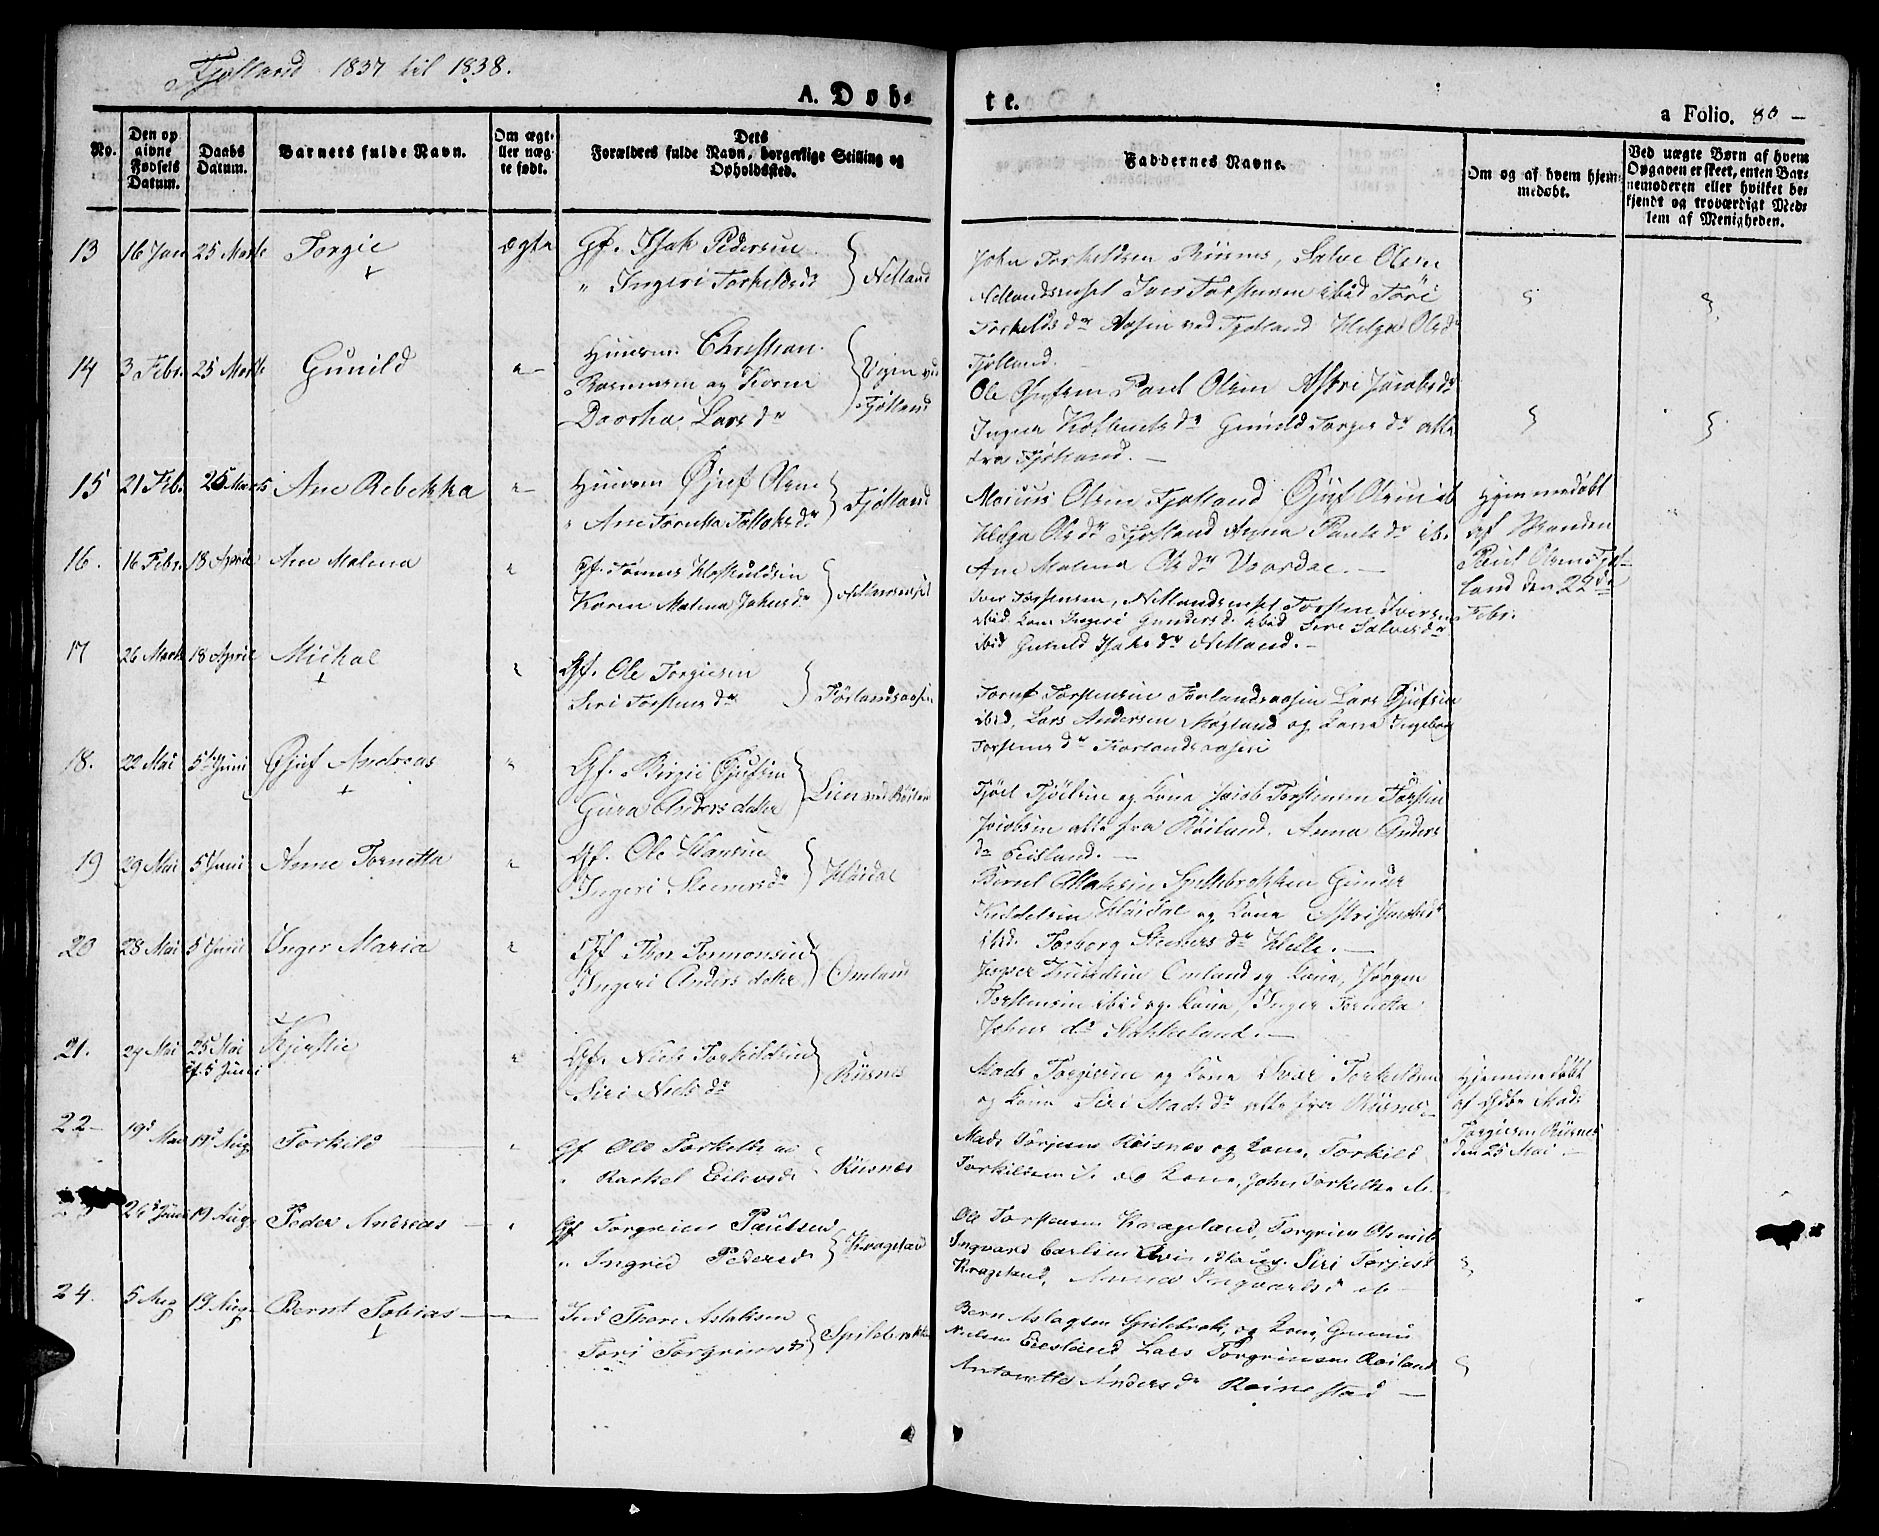 Fjotland 1837 til 1838.
A. Døb-
te.
a Folio. 80 -
No.
Den op
givne
Fødsels
Datum.
Daabs
Datum.
Barnets fulde Navn.
Om ægte
eller uæg-
te født.
Dets
Forældres fulde Navn, borgerlige Stilling og
Opholdssted.
Faddernes Navne.
Om og af hvem hjem-
medøbt.
Ved uægte Børn af hvem
Opgaven er skeet, enten Bar-
nemoderen eller hvilket be-
kjendt og troværdigt Med-
lem af Menigheden.
13 16 Jan 25 Marts Torgie ægte Gf. Isak Pedersen
" Ingeri Torkeldsd Netland
John Torkeldsen Riisnes, Salve Olsen
Netland Iver Torstensen ibid Tori
Torkelds dr Aasen ved Fjotland Helga Olsd
Fjotland.
14 3 Febr. 25 Marts Gunild Huusm. Christian
Rasmusen og Kone
Dorthe Lars dr
Ugin ved
Fjotland
Ole Gjufsen Paul Olsen Astri Jacobsdr
Ingea dr Gunild Torges dr alle
fra Fjotland. -
15 21 Feb. 26 Marts Ane Rebekka Huusm Gjuf Olsen
" Ane Tornetta Tallaks dr Fjotland
Marius Olsen Fjotland Gjuf Olsen ib
Helga Ols dr Fjotland Anna Pauls dr ib.
Ane Malena Ols dr
Hjemmedøbt
af Manden
Paul Olsen Fjot-
land den 22de
Febr.
16. 16 Febr. 18 April Ane Malena Gf. Tønnes Hoskuldsen
Karen Malena Jakobs dr
Iver Torstensen, Torsten Iversen
ibid Kone Ingeri Gundersd. ibid Siri Salves dr
ibid Gunild Isaks dr Netland. -
17 26 Marts 18 April Michal Gf. Ole Torgiesen
Siri Torstens dr Førlandsaasen
Tornes Torstensen Førlandsaasen Lars Gjufsen
ibid, Lars Andersen Møgland og Kone Ingeborg
Torstens dr Førlandsaasen
18. 22 Mai 5te Juni Gjuf Andreas Gf. Birgie Gjufsen
Gura Anders datter Lien ved Røiland
Tjøel Tjøelsen og Kone Jacob Torstensen Torsten
Jacobsen alle fra Røiland. Anna Anders
dr Eesland. -
19 29 Mai 5 Juni Anne Tornetta Gf. Ole Hansen
Ingeri Steners dr Høidal
Bernt Atlaksen Spillebrokken Gunder
Keddelsen Høidal og Kone Astri
ibid. Torborg Steners dr Helle. -
20 28 Mai 5 Juni Inger Maria Gf Thor Tormonsen
Ingeri Anders datter Omland
Jesper Omland og Kone, Jørgen
Torstensen ibid og Kone, Inger Tornetta
Johns dr Stakkeland. -
21. 24 Mai 25 Mai
cf. 5 Juni Kjerstie Gf. Niels Torkildsen
Siri Niels dr Riisnes
Mads Torgiesen og Kone Iver Torkildsen
og Kone Siri Mads dr alle fra Riisnes
Hjemmedøbt
af Mads
Torgiesen Riisnes
den 25 Mai -
22- 19d Mai 19d Aug. Torkild Gf Ole Torkelsen
Rachel Eilevsd Riisnes
Mads Torjesen Roisnes og Kone, Torkild
Torkildsen og Kone, John Torkelsen
26d Juni 19 Aug. Peder Andreas Gf Torgrim Paulsen
" Ingrid Pedersd Kvageland
Ole Torstensen Kvageland, Torgrim Olsen ib
Ingvard Carlsen Siri Torjesd
Kvageland, Anna Ingvardsd ib -
24. 5 Aug 19 Aug. Bernt Tobias Ind Thore Aslaksen
Tori Torgrimsd Spilebrokken
Bern Aslagsen Spilebrok, og Kone, Gunder
Nielsen Eiesland Lars Torgrimsen Røiland
Antonette Andersd Reinestad -